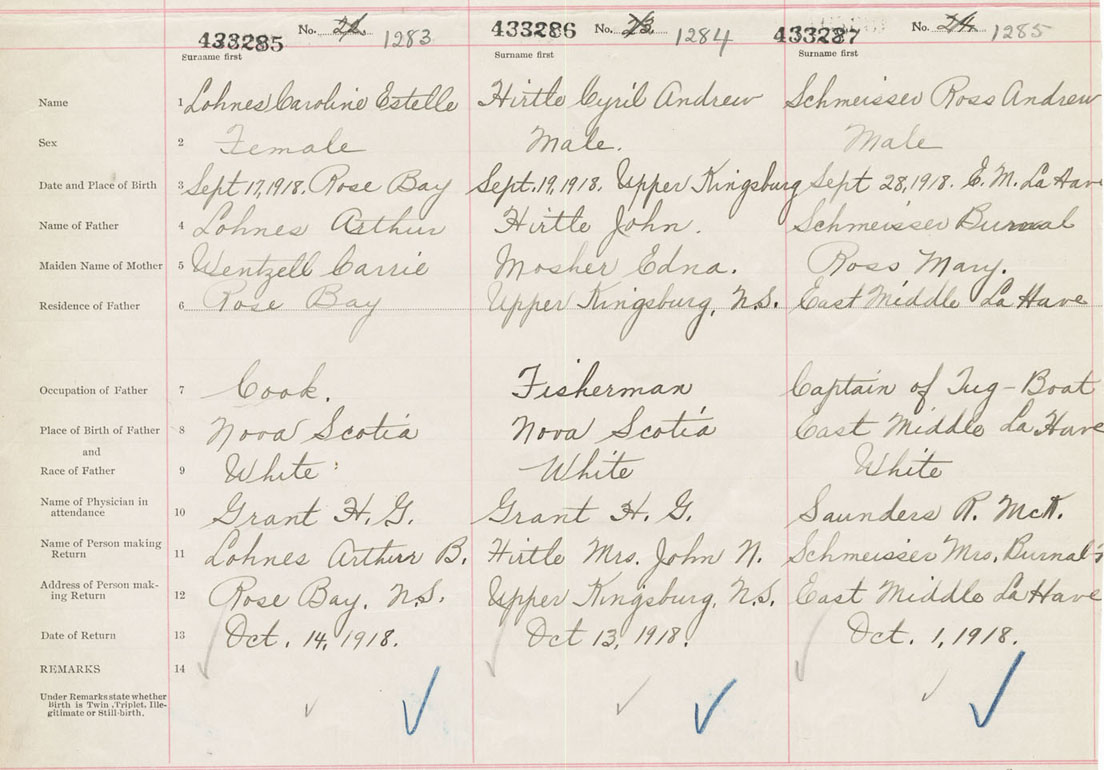 433285 No. 22. 1283 433286 No. 23. 1284 433287 No. 24. 1285
Surname first Surname first Surname first
Name 1 Lohnes Caroline Estelle Hirtle Cyril Andrew Schmeisser Ross Andrew
Sex 2 Female Male. Male
Date and Place of Birth 3 Sept 17, 1918. Rose Bay Sept. 19, 1918. Upper Kingsburg Sept 28, 1918. E. M. La Have
Name of Father 4 Lohnes Arthur Hirtle John. Schmeisser Burnal
Maiden Name of Mother 5 Wentzell Carrie Mosher Edna. Ross Mary.
Residence of Father 6 Rose Bay Upper Kingsburg, N.S. East Middle La Have
Occupation of Father 7 Cook. Fisherman Captain of Tug-Boat
Place of Birth of Father 8 Nova Scotia Nova Scotia East Middle La Have
and
Race of Father 9 White White White
Name of Physician in
attendance 10 Grant H. G. Grant H. G. Saunders R. McK.
Name of Person making
Return 11 Lohnes Arthur B. Hirtle Mrs. John N. Schmeisser Mrs. Burnal
Address of Person mak-
ing Return 12 Rose Bay, N.S. Upper Kingsburg, N.S. East Middle La Have
Date of Return 13 Oct. 14, 1918. Oct 13, 1918. Oct. 1, 1918.
REMARKS 14
Under Remarks state whether
Birth is Twin, Triplet, Ille-
gitimate or Still-birth.